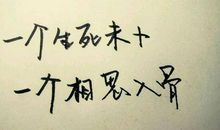 一个生死未卜
一个相思入骨